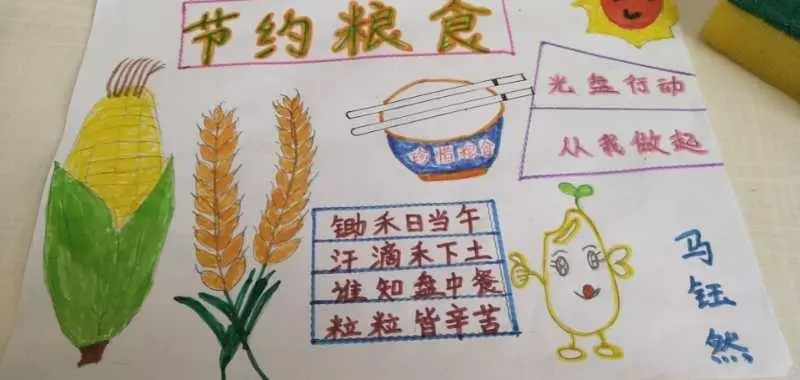 节约粮食
光盘行动
从我做起
珍惜粮食
锄禾日当午
汗滴禾下土
谁知盘中餐
粒粒皆辛苦
马钰然